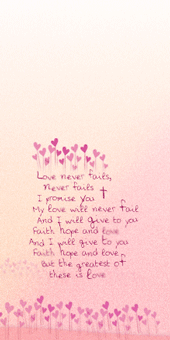 Love never fails,
Never fails
I promise you
My love will never fail
And I will give to you
Faith hope and love
And I will give to you
Faith hope and love
But the greatest of
these is love